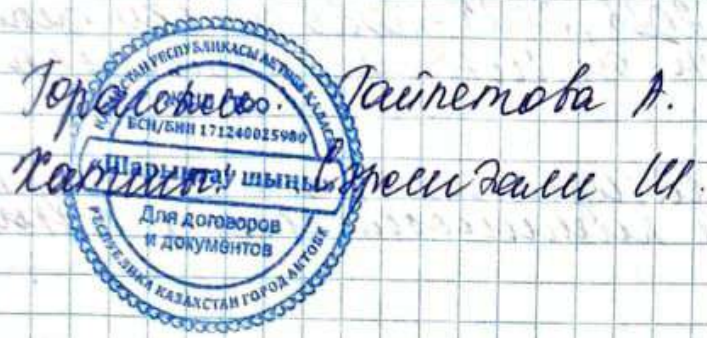 Төрағасы: Таипетова А.
Хатшы: Ш.
ҚАЗАҚСТАН РЕСПУБЛИКАСЫ АҚТӨБЕ ҚАЛАСЫ
ЖШС/ТОО
БСН/БИН 171240025980
«Шарықтау шыңы»
Для договоров
и документов
РЕСПУБЛИКА КАЗАХСТАН ГОРОД АКТОБЕ